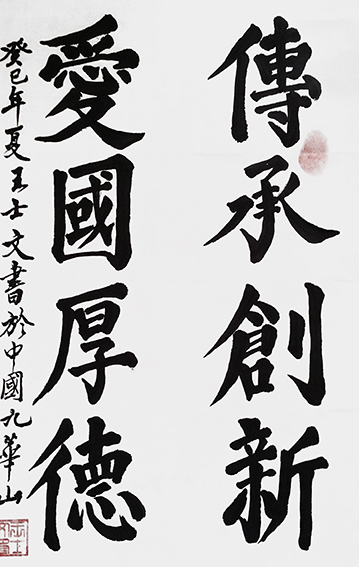 傳承創新
愛國厚德
癸巳年夏王士文書於中國九華山